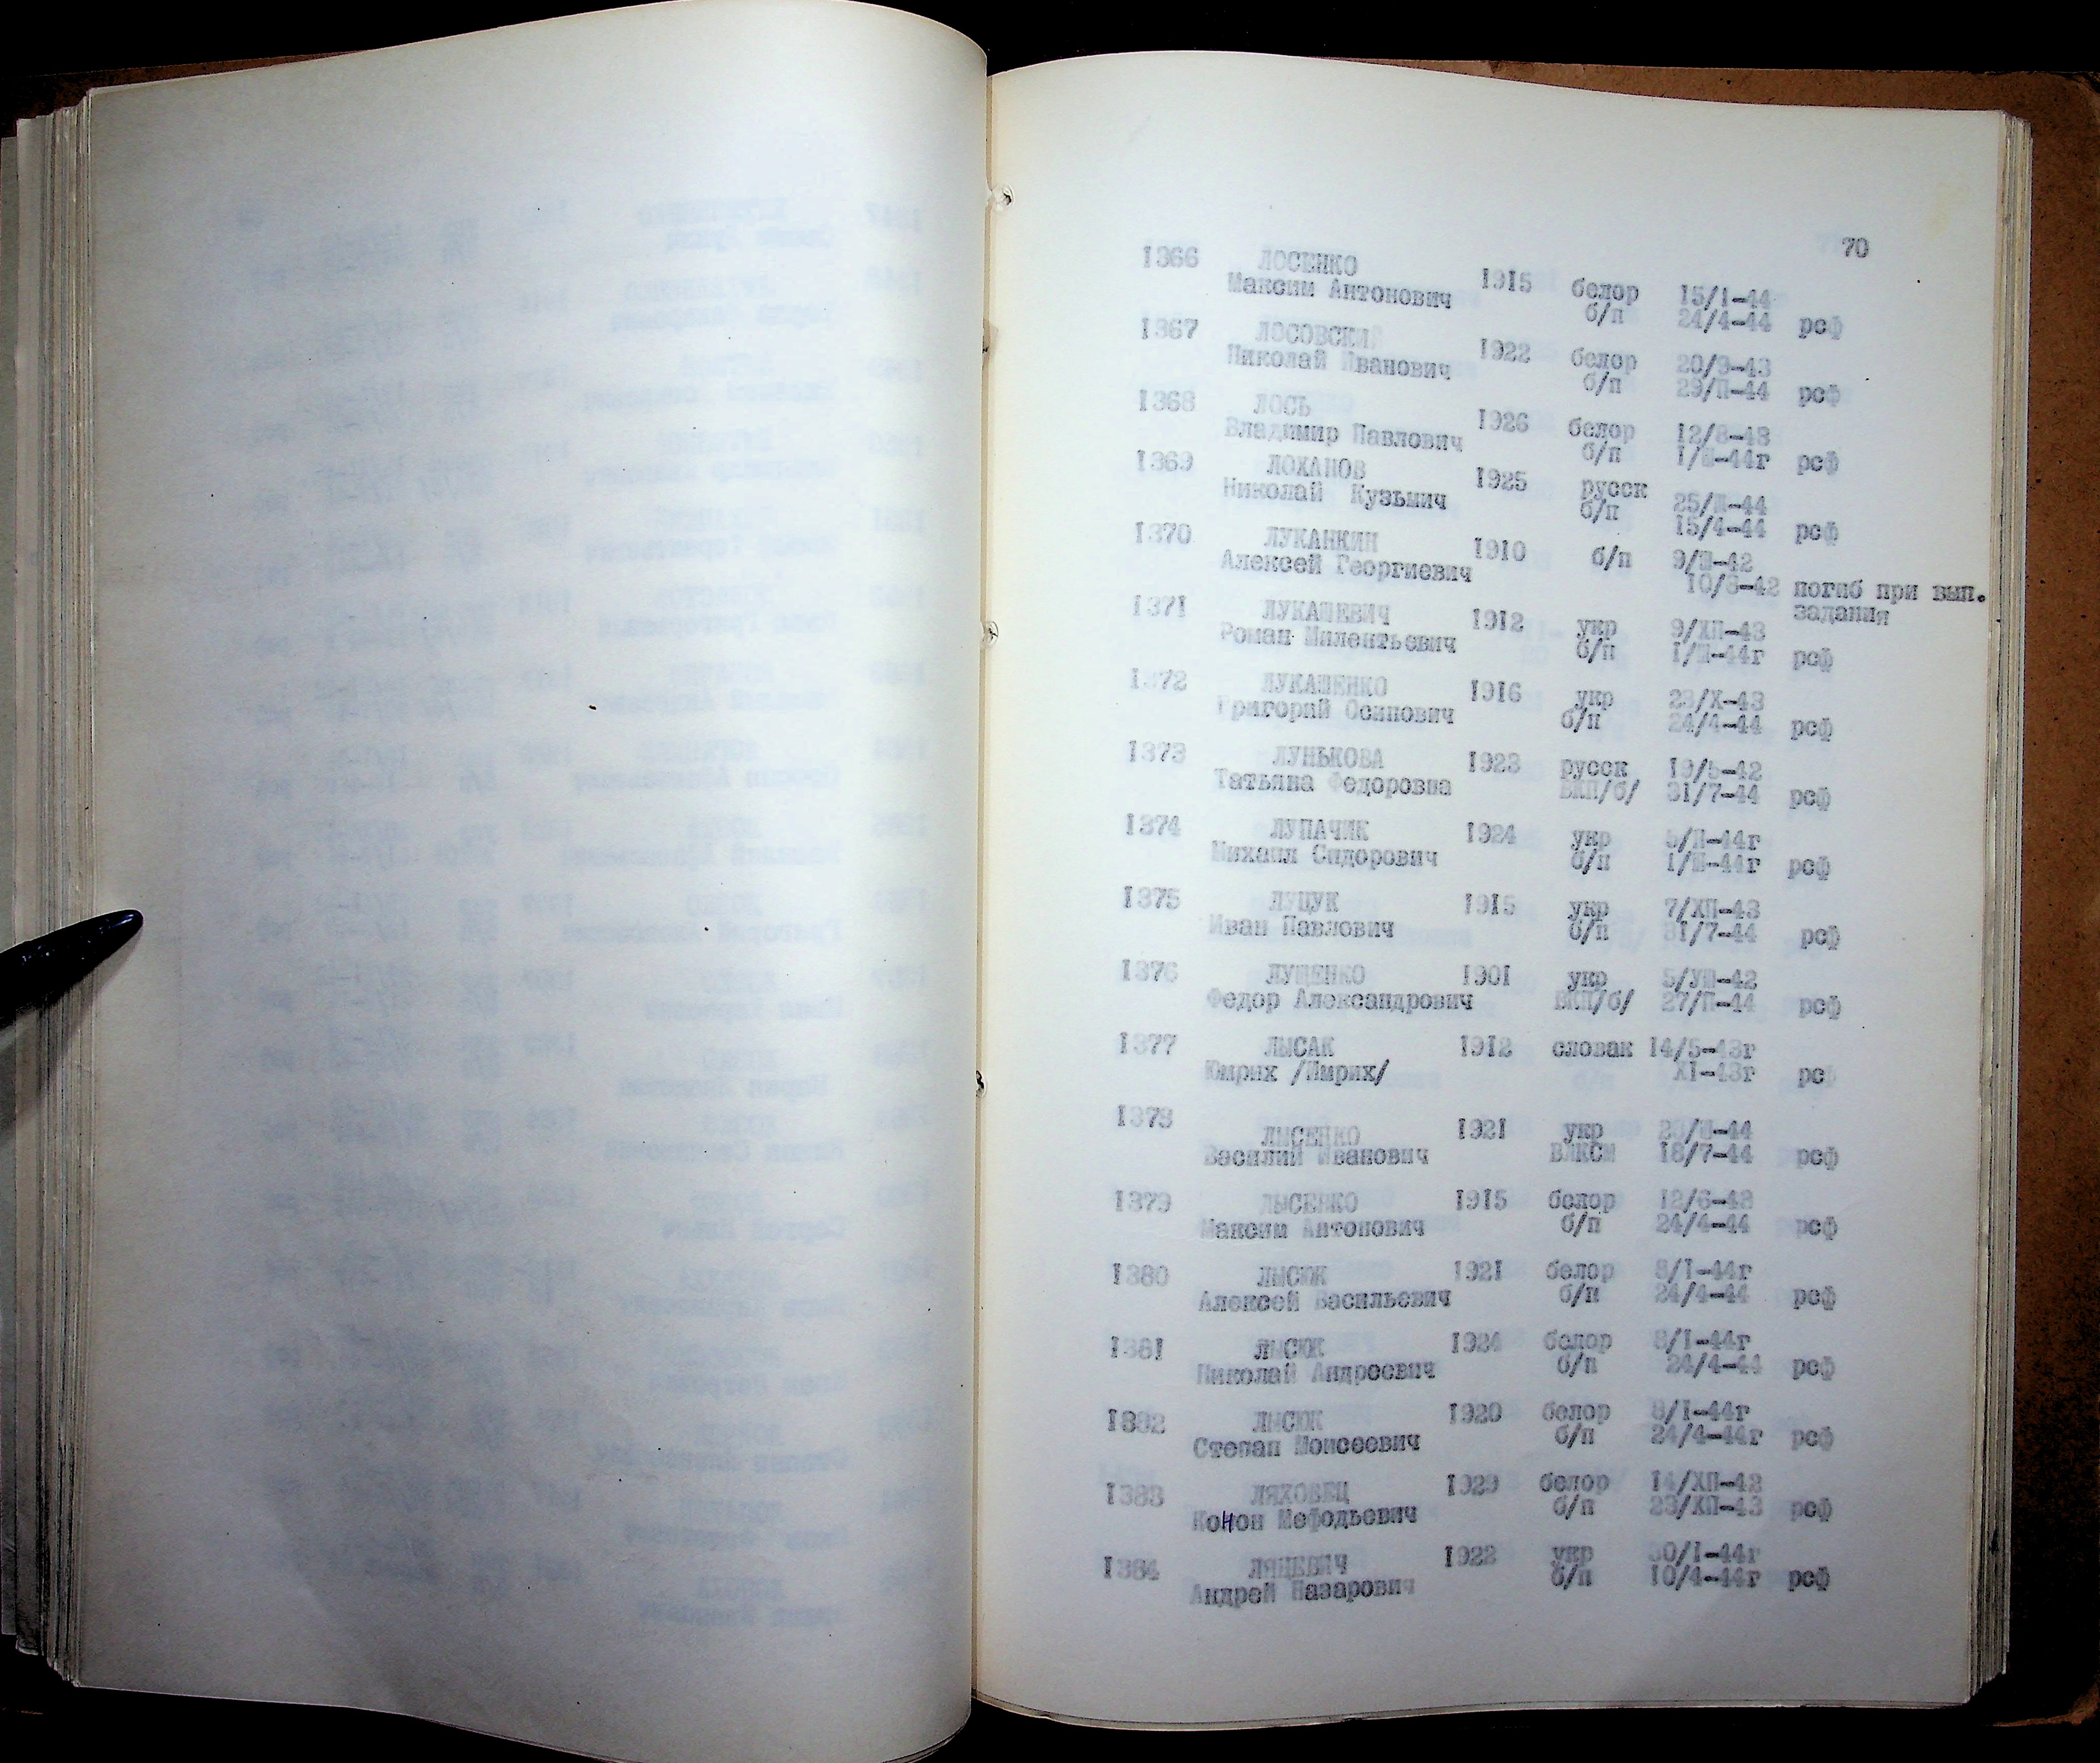 70
1366 ЛОСЕНКО
Максим Антонович 1915 белор 15/I-44
б/п 24/4-44 рсф
1367 ЛОСОВСКИЙ
Николай Иванович 1922 белор 20/9-43
б/п 29/П-44 рсф
1368 ЛОСЬ
Владимир Павлович 1926 белор 12/8-43
б/п 1/Ш-44г рсф
1369 ЛОХАНОВ
Николай Кузьмич 1925 русск 25/Ш-44
б/п 15/4-44 рсф
1370 ЛУКАНКИН
Алексей Георгиевич 1910 б/п 9/Ш-42
10/8-42 погиб при вып.
задания
1371 ЛУКАШЕВИЧ
Роман Милентьевич 1912 укр 9/ХП-43
б/п 1/Ш-44г рсф
1372 ЛУКАШЕНКО
Григорий Осипович 1916 укр 23/Х-43
б/п 24/4-44 рсф
1373 ЛУНЬКОВА 1923 русск 19/5-42
Татьяна Федоровна ВКП/б/ 31/7-44 рсф
1374 ЛУПАЧИК 1924 укр 5/П-44г
Михаил Сидорович б/п 1/Ш-44г рсф
1375 ЛУЦУК 1915 укр 7/ХП-43
Иван Павлович б/п 31/7-44 рсф
1376 ЛУЩЕНКО 1901 укр 5/УШ-42
Федор Александрович ВКП/б/ 27/П-44 рсф
1377 ЛЫСАК 1912 словак 14/5-43г
Юмрих /Имрих/ XI-43г рс
1378 ЛЫСЕНКО 1921 укр 23/Ш-44
Василий Иванович ВЛКСМ 18/7-44 рсф
1379 ЛЫСЕНКО 1915 белор 12/6-43
Максим Антонович б/п 24/4-44 рсф
1380 ЛЫСЮК 1921 белор 8/I-44г
Алексей Васильевич б/п 24/4-44 рсф
1381 ЛЫСЮК 1924 белор 8/I-44г
Николай Андреевич б/п 24/4-44 рсф
1382 ЛЫСЮК 1920 белор 8/I-44г
Степан Моисеевич б/п 24/4-44г рсф
1383 ЛЯХОВЕЦ 1929 белор 14/ХП-42
Конон Мефодьевич б/п 23/ХП-43 рсф
1384 ЛЯЦЕВИЧ 1922 укр 30/I-44г
Андрей Назарович б/п 10/4-44г рсф